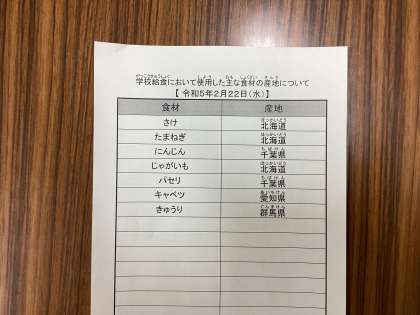 学校給食において使用した主な食材の産地について
【 令和5年2月22日(水)】
食材 産地
さけ 北海道
たまねぎ 北海道
にんじん 千葉県
じゃがいも 北海道
パセリ 千葉県
キャベツ 愛知県
きゅうり 群馬県